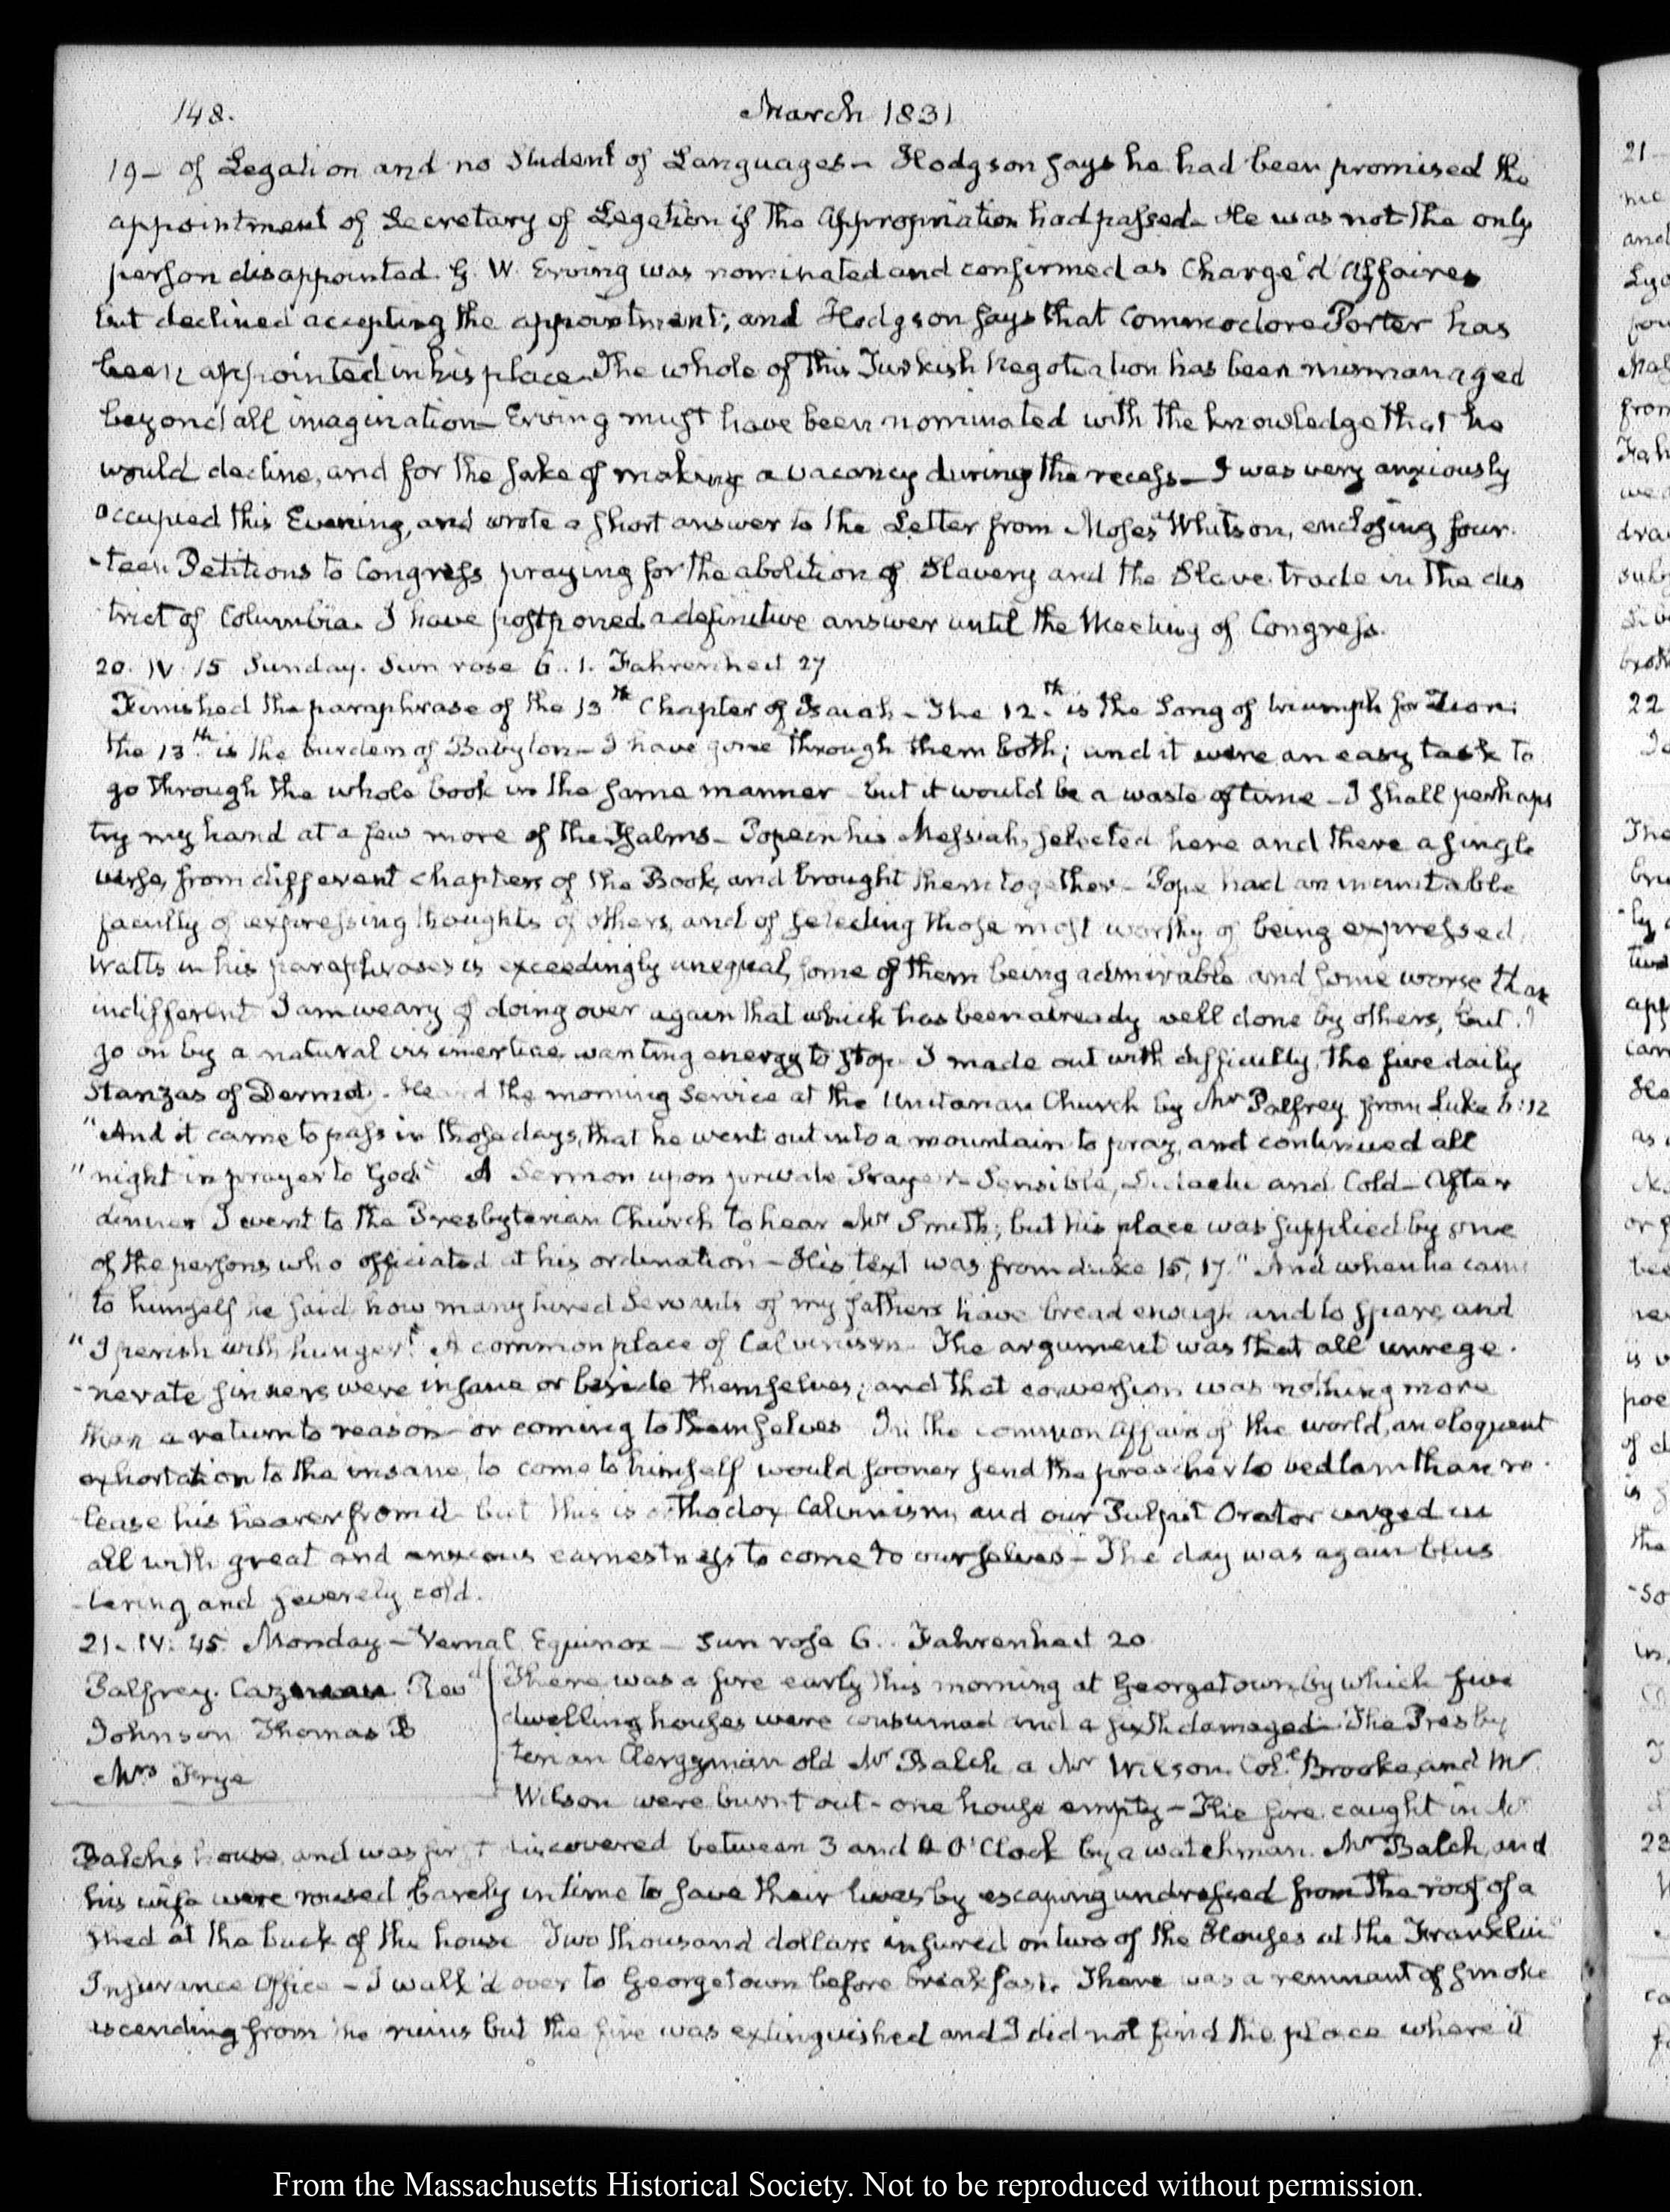 148. March 1831
19- of Legation and no Student of Languages- Hodgson says he had been promised the
appointment of Secretary of Legation if the Appropriation had passed- He was not the only
person disappointed. G. W. Erving was nominated and confirmed as Chargé d'Affaires
but declined accepting the appointment; and Hodgson says that Commodore Porter has
been appointed in his place. The whole of this Turkish Negotiation has been mismanaged
beyond all imagination- Erving must have been nominated with the knowledge that he
would decline, and for the sake of making a vacancy during the recess- I was very anxiously
occupied this Evening, and wrote a short answer to the Letter from Moses Whitson, enclosing four-
-teen Petitions to Congress, praying for the abolition of Slavery and the Slave-trade in the dis
trict of Columbia. I have postponed a definitive answer until the Meeting of Congress.
20. IV. 15 Sunday. Sun rose 6..1. Fahrenheit 27
Finished the paraphrase of the 13th Chapter of Isaiah- The 12.th is the Song of triumph for Zion:
the 13th is the burden of Babylon- I have gone through them both; and it were an easy task to
go through the whole book in the same manner but it would be a waste of time- I shall perhaps
try my hand at a few more of the Psalms- Pope in his Messiah, selected here and there a single
verse, from different chapters of the Book, and brought them together- Pope had an inimitable
faculty of expressing thoughts of others, and of selecting those most worthy of being expressed.
Watts in his paraphrases is exceedingly unequal, some of them being admirable and some worse than
indifferent I am weary of doing over again that which has been already well done by others, but I
go on by a natural vis inertiae, wanting energy to stop. I made out with difficulty, the five daily
Stanzas of Dermot. Heard the morning Service at the Unitarian Church by Mr Palfrey from Luke 6:12
"And it came to pass in those days, that he went out into a mountain to pray, and continued all
"night in prayer to God." A Sermon upon private Prayer- Sensible, Didactic and Cold- After
dinner I went to the Presbyterian Church to hear Mr Smith; but his place was supplied by one
of the persons who officiated at his ordination- His text was from Luke 15, 17. "And when he came
to himself he said, how many hired Servants of my fathers have bread enough and to spare, and
"I perish with hunger" A common place of Calvinism. The argument was that all unrege-
-nerate sinners were insane or beside themselves; and that conversion was nothing more
than a return to reason or coming to themselves In the common affairs of the world, an eloquent
exhortation to the insane, to come to himself would sooner send the preacher to bedlam than re-
lease his hearer from it- but this is orthodox Calvinism, and our Pulpit Orator urged us
all with great and anxious earnestness to come to ourselves- The day was again blus
-tering and severely cold.
21- IV: 45. Monday- Vernal Equinox- Sun rose 6.. Fahrenheit 20
Palfrey. Cazneau Revd
Johnson Thomas B
Mrs Frye
There was a fire early this morning at Georgetown, by which five
dwelling houses were consumed and a sixth damaged- The Presby
terian Clergyman old Mr Balch a Mr Wilson, Col. Brooke, and Mr
Wilson were burnt out- one house empty- The fire caught in Mr
Balch's house, and was first discovered between 3 and 4 O'Clock by a watchman. Mr Balch, and
his wife were roused barely in time to save their lives by escaping undressed from the roof of a
shed at the back of the house Two thousand dollars insured on two of the Houses at the Franklin
Insurance Office- I walk'd over to Georgetown before breakfast. There was a remnant of smoke
ascending from the ruins but the fire was extinguished and I did not find the place where it
From the Massachusetts Historical Society. Not to be reproduced without permission.